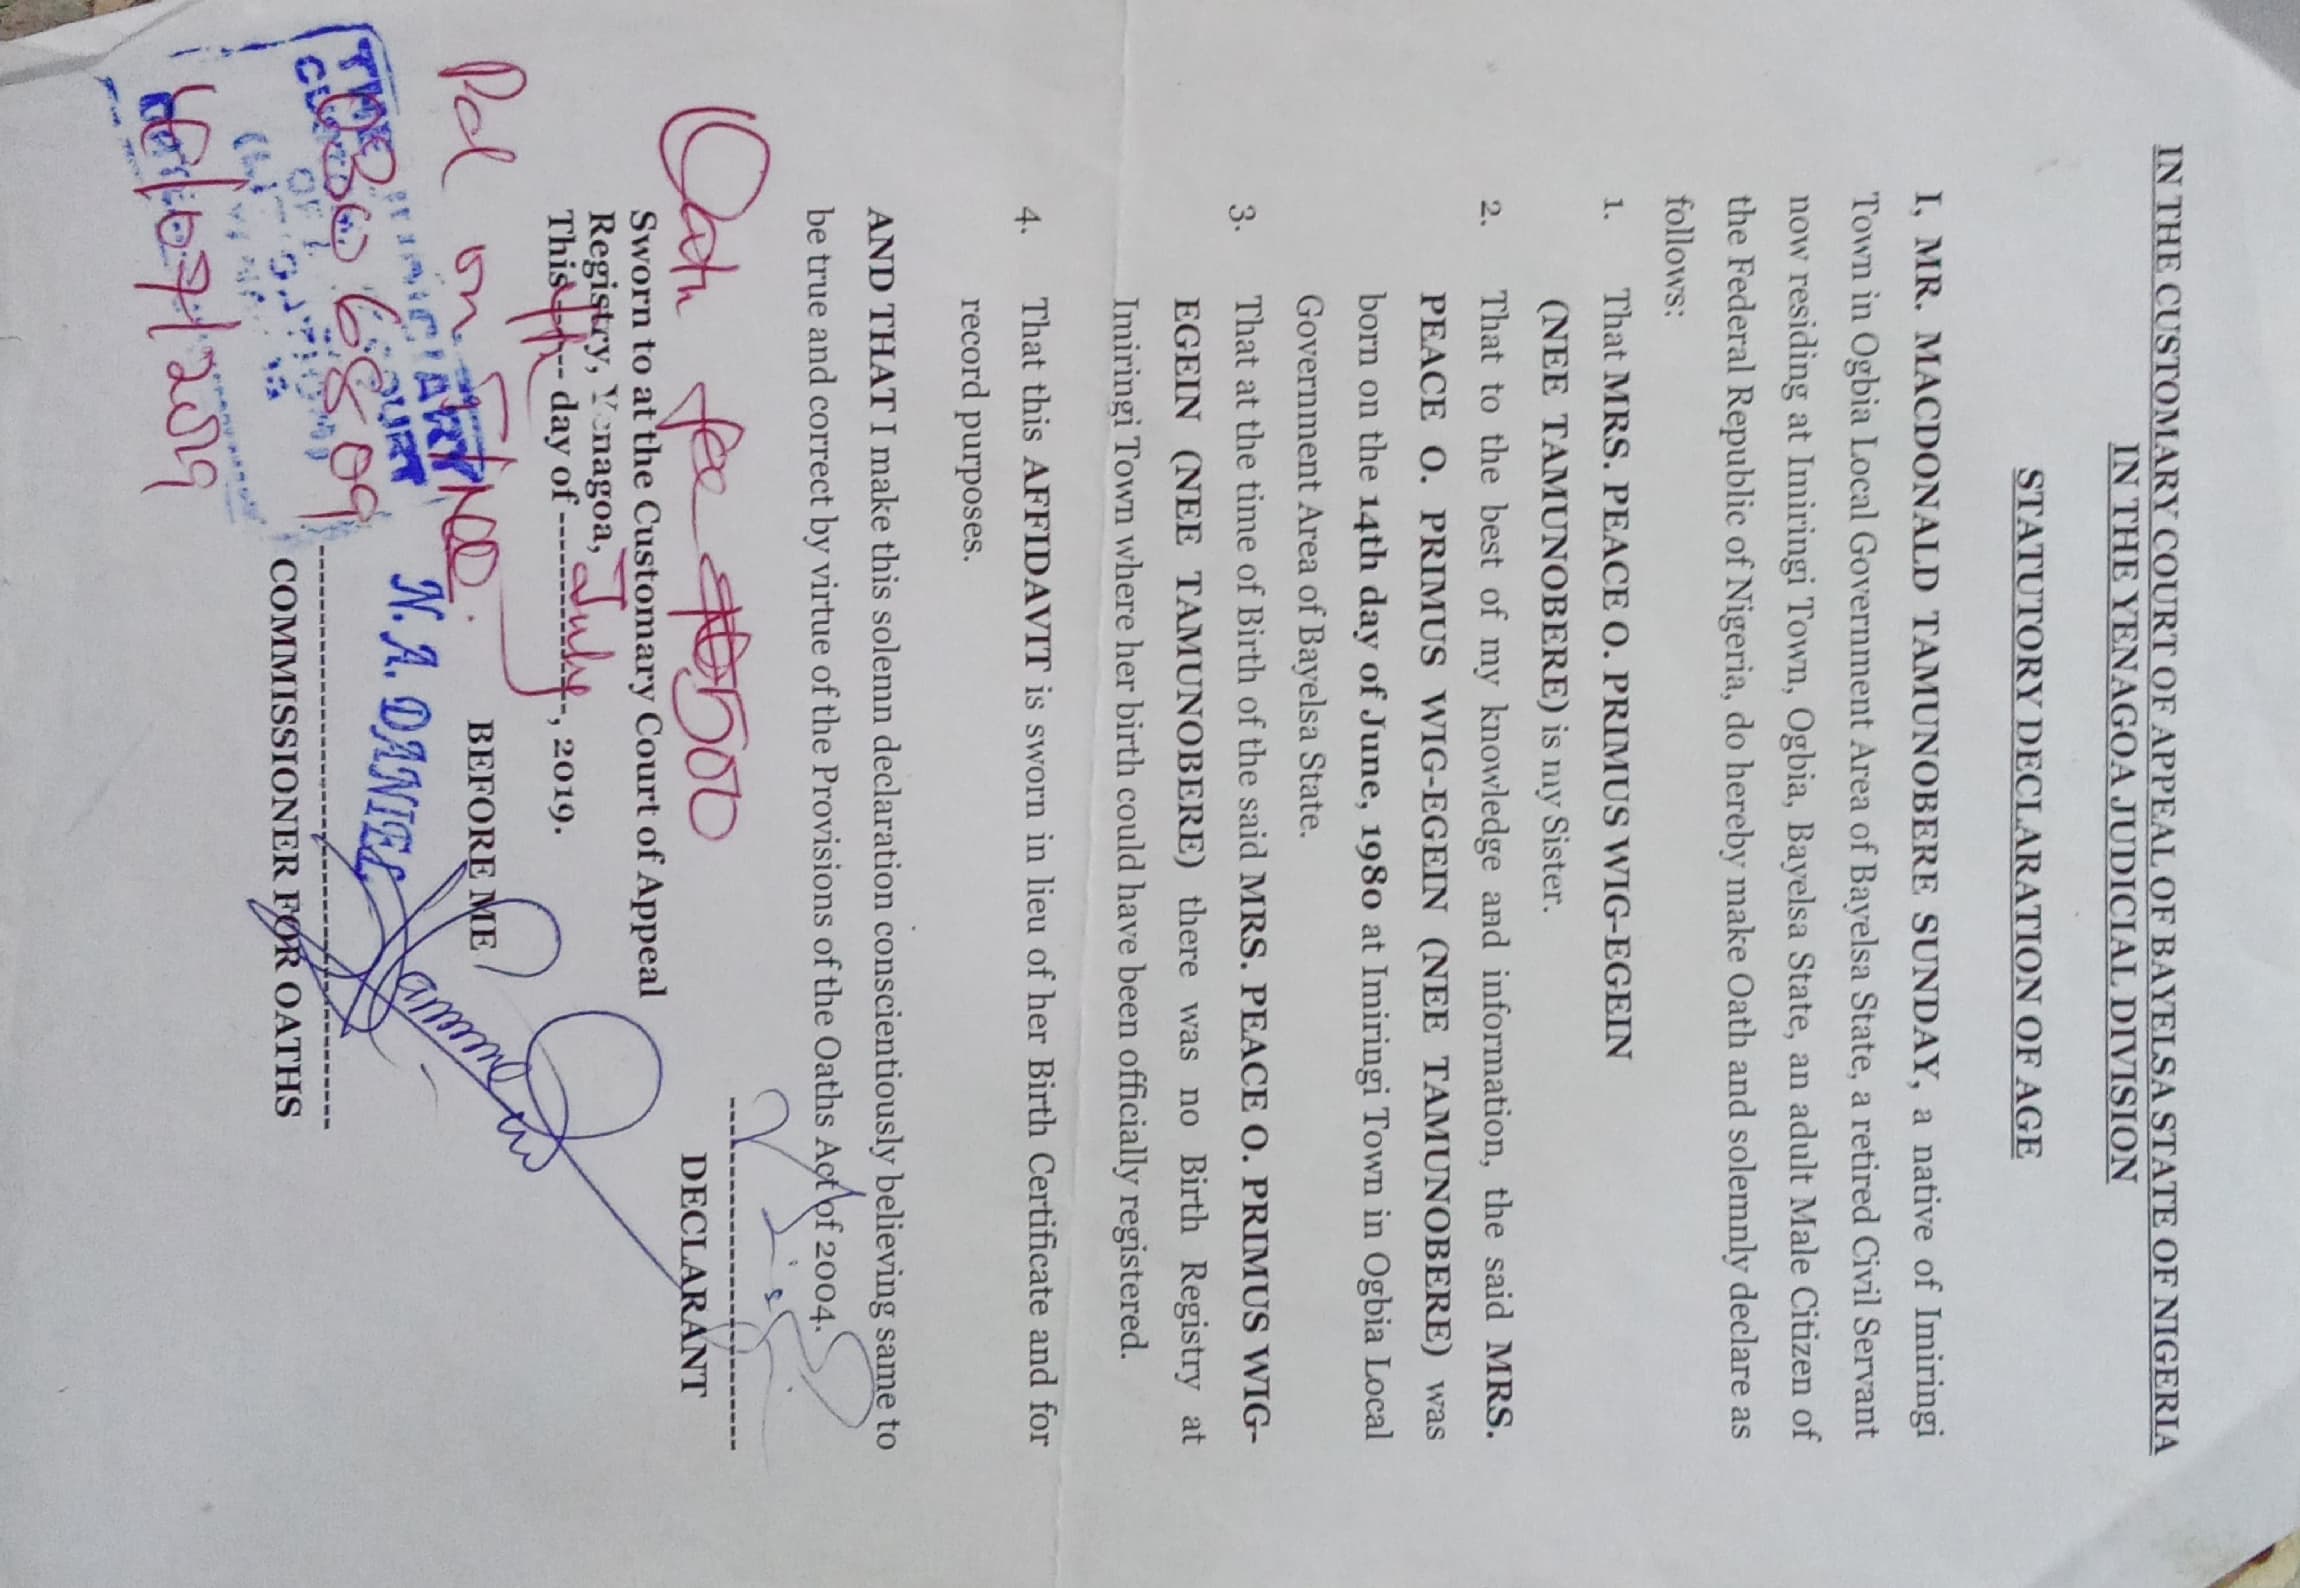 IN THE CUSTOMARY COURT OF APPEAL OF BAYELSA STATE OF NIGERIA
IN THE YENAGOA JUDICIAL DIVISION
STATUTORY DECLARATION OF AGE
I, MR. MACDONALD TAMUNOBERE SUNDAY, a native of Imiringi
Town in Ogbia Local Government Area of Bayelsa State, a retired Civil Servant
now residing at Imiringi Town, Ogbia, Bayelsa State, an adult Male Citizen of
the Federal Republic of Nigeria, do hereby make Oath and solemnly declare as
follows:
1. That MRS. PEACE O. PRIMUS WIG-EGEIN
(NEE TAMUNOBERE) is my Sister.
2. That to the best of my knowledge and information, the said MRS.
PEACE O. PRIMUS WIG-EGEIN (NEE TAMUNOBERE) was
born on the 14th day of June, 1980 at Imiringi Town in Ogbia Local
Government Area of Bayelsa State.
3. That at the time of Birth of the said MRS. PEACE O. PRIMUS WIG-
EGEIN (NEE TAMUNOBERE) there was no Birth Registry at
Imiringi Town where her birth could have been officially registered.
4. That this AFFIDAVIT is sworn in lieu of her Birth Certificate and for
record purposes.
AND THAT I make this solemn declaration conscientiously believing same to
be true and correct by virtue of the Provisions of the Oaths Act of 2004.
DECLARANT
Oath fee ₦500
Sworn to at the Customary Court of Appeal
Registry, Yenagoa,
This day of July, 2019.
BEFORE ME
Pd on
JUDICIARY
N. A. DANIEL
COMMISSIONER FOR OATHS
/07/2019